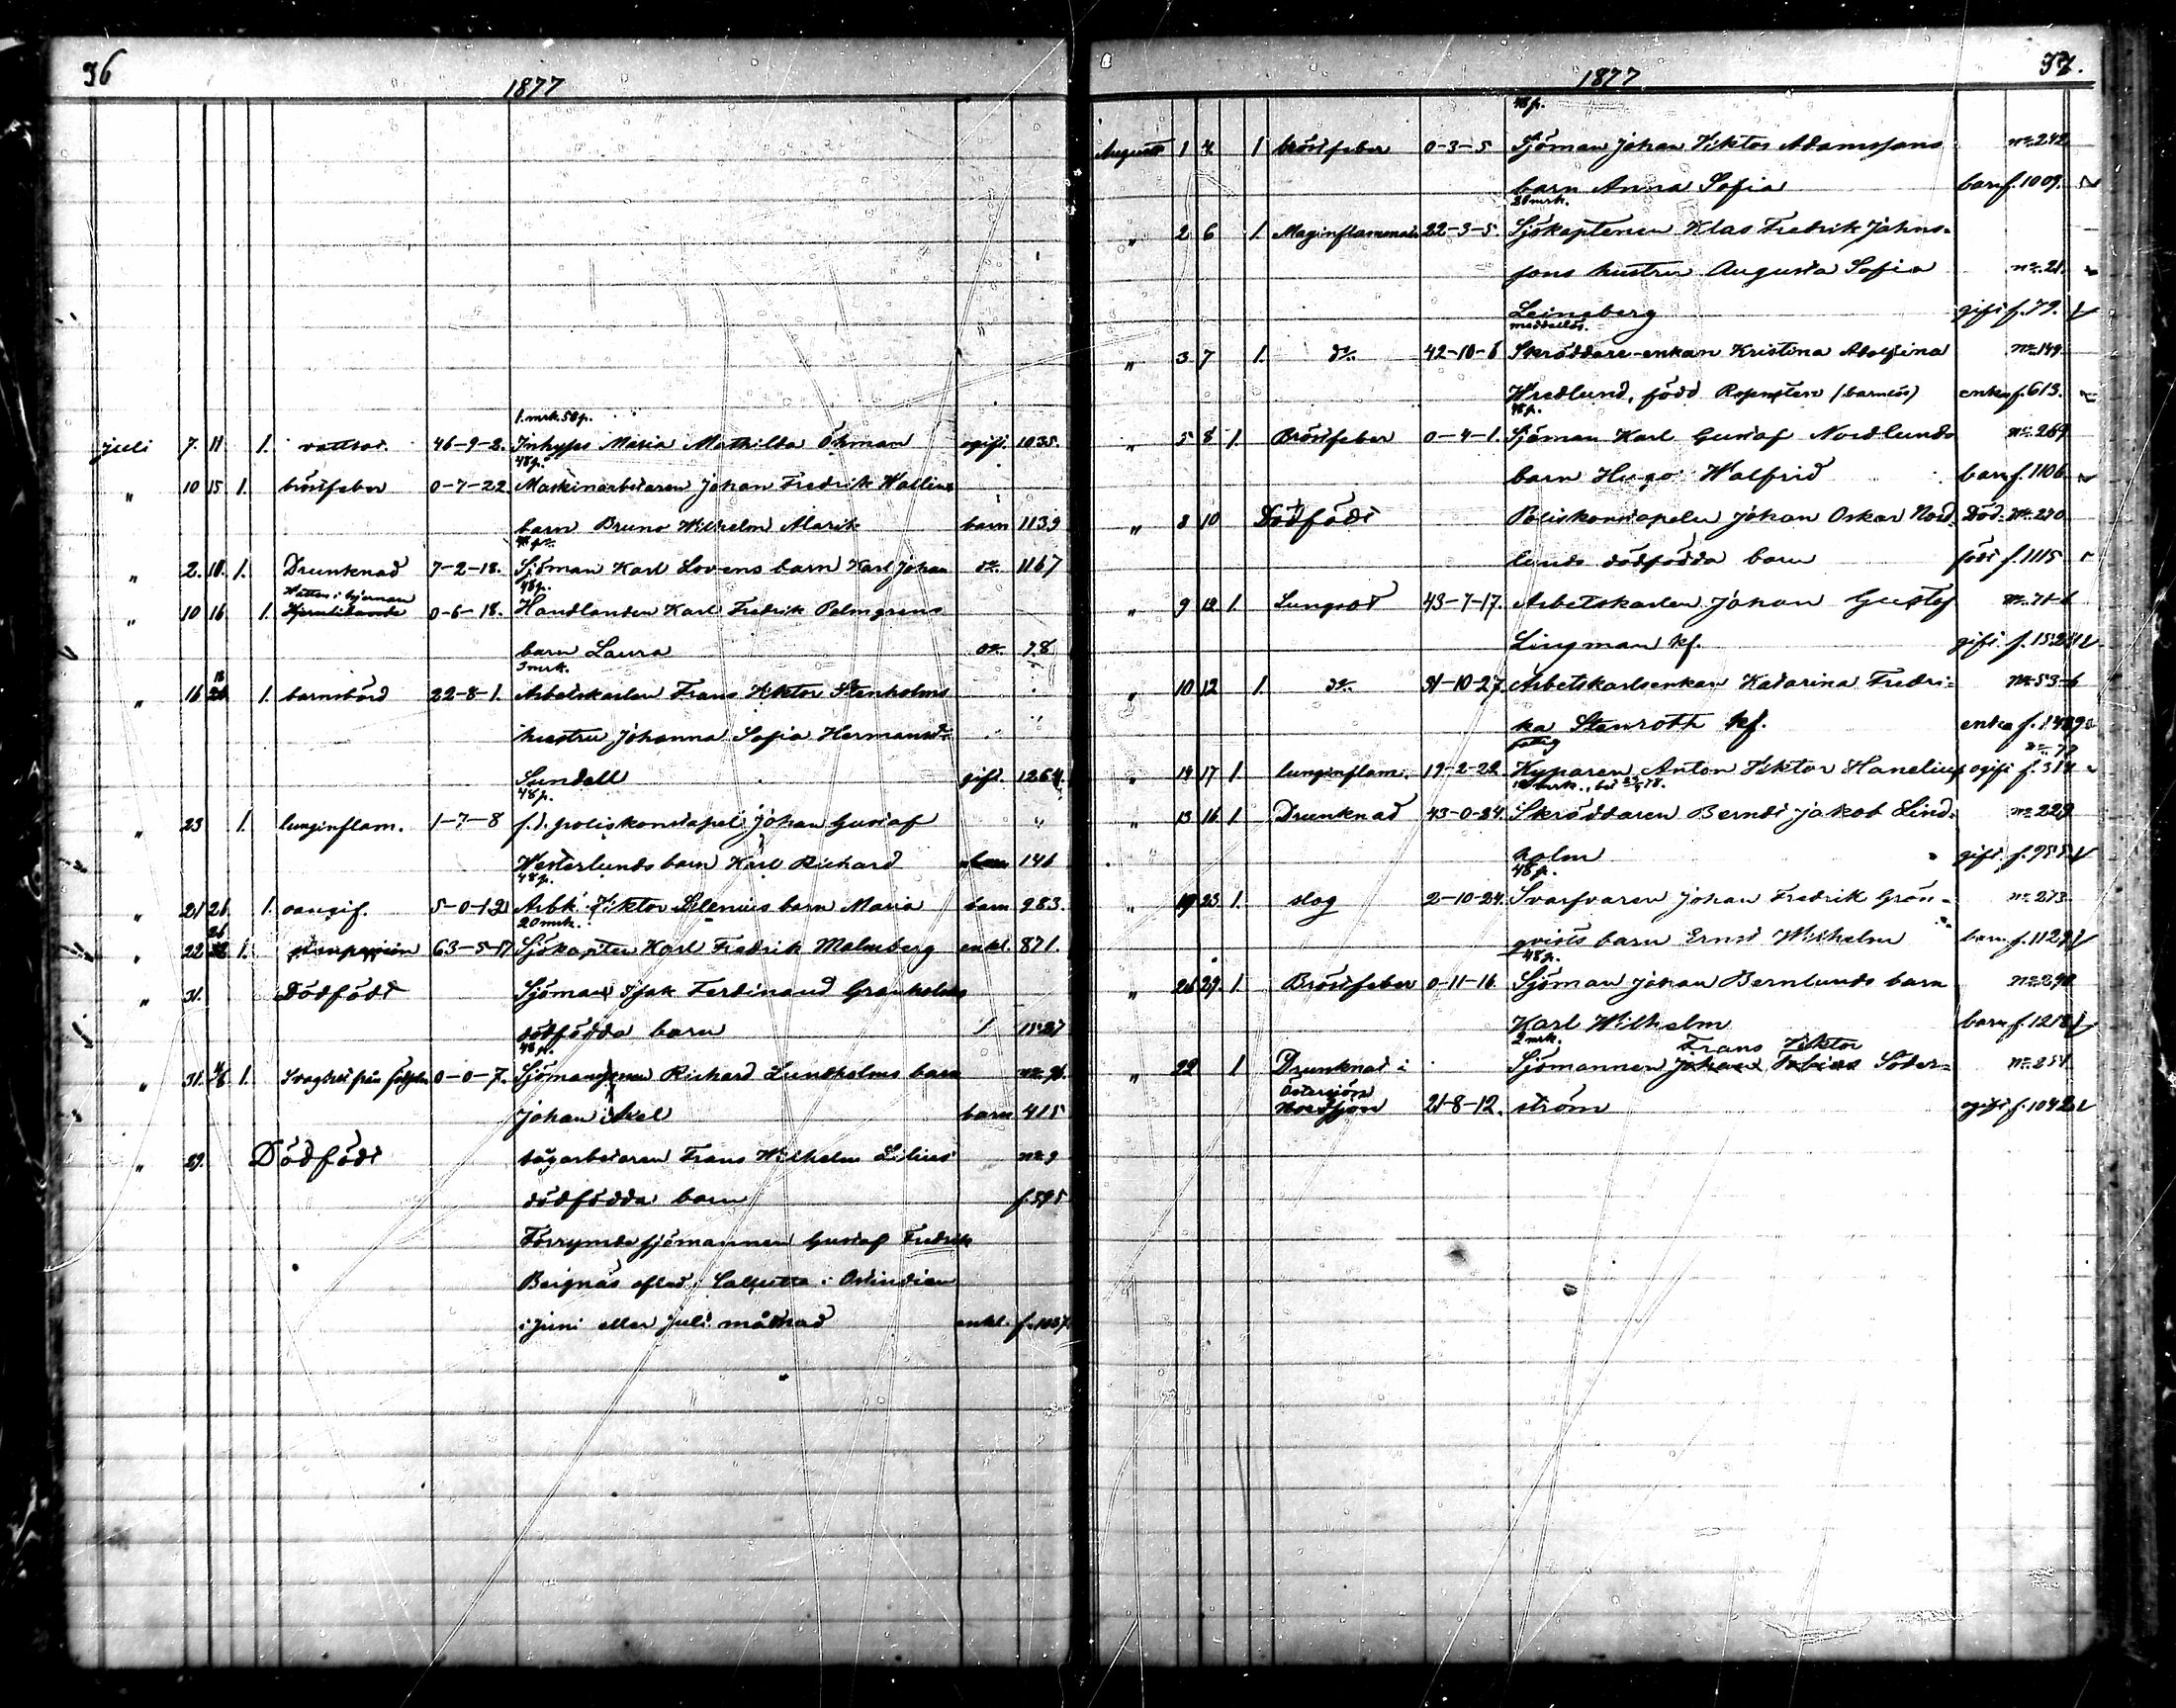 36
1877
1. mrk. 50 p.
juli 7. 11 1. vattsot. 46-9-2. Inhyses Maria Mathilda Öhman ogift. 1035.
48 p.
" 10 15 1. bröstfeber 0-7-22. Maskinarbetaren Johan Fredrik Wallins
barn Bruno Wilhelm Alarik barn 1139
" 2. 10. 1. Drunknad 7-2-18. Sjöman Karl Lovens barn Karl Johan do. 1167
48 p.
Vatten i hjernan
" 10 16 1. 0-6-18. Handlanden Karl Fredrik Palmgrens
barn Laura do. 78
3 mrk.
18
" 16 1. barnsbörd 22-8-1. Arbetskarlen Frans Viktor Stenholms
hustru Johanna Sofia Hermansd:r
Sundell gift. 1264.
48 p.
" 23 1. lunginflam. 1-7-8 f.d. poliskonstapel Johan Gustaf
Westerlunds barn Karl Richard barn 146
48 p.
" 21 26 1. oangif. 5-0-12 Arbk. Viktor barn Maria barn 983.
20 mrk.
26
" 22 1. 63-5-17 Sjökapten Karl Fredrik Malmberg enkl. 871.
" 31. Dödfödt Sjöman Isak Ferdinand Granholms
dödfödda barn / 1527
48 p.
" 31. 4/8 1. Svaghet från födseln 0-0-7. Sjöman Richard Lundholms barn
Johan Axel barn 415
" 29. Dödfödt sågarbetaren Frans Wilhelm Lilius no 9
dödfödda barn f. 595
Förrymde sjömannen Gustaf Fredrik
Beignäs afled i Calkutta i Ostindien
i juni eller juli månad enkl. f. 1037.
37.
1877
48 p.
Augusti 1 4 1 bröstfeber 0-3-5 Sjöman Johan Viktor Adamssons no 242
barn Anna Sofia barn f. 1009.
20 mrk.
" 2 6 1. Maginflammat. 22-3-5. Sjökaptenen Klas Fredrik Johns-
sons hustru Augusta Sofia no 21.
Leinsberg gift f. 79.
medellös.
" 3 7 1. do. 42-10-6 Skräddare-enkan Kristina Adolfina no 149.
Wredlund, född (barnlös) enka f. 613.
48 p.
" 5 8 1. Bröstfeber 0-4-1. Sjöman Karl Gustaf Nordlunds no 269
barn Hugo Walfrid barn f. 1106
" 8 10 Dödfödt Poliskonstapeln Johan Oskar Nord- Död- no 270
lunds dödfödda barn född f. 1115
" 9 12 1. Lungsot 43-7-17. Arbetskarlen Johan Gustaf no 71-6
Lingman kf. gift f. 1525
" 10 12 1. do. 31-10-27. Arbetskarlsenkan Katarina Fredri- no 53-6
ka Stenroth kf. enka f. 1489
fattig
no 72
" 14 17 1. lunginflam. 19-2-22 Kyparen Anton Viktor Hanelius ogift f. 314
" 13 16 1. Drunknad 43-0-24. Skräddaren Berndt Jakob Lind- no 229
holm gift. f. 955
48 p.
" 19 23 1. slag 2-10-24. Svarfvaren Johan Fredrik Grön- no 273
qvists barn Ernst Wilhelm barn f. 1129
48 p.
" 26 29. 1. Bröstfeber 0-11-16. Sjöman Johan Bernlunds barn no 290
Karl Wilhelm barn f. 1218
2 mrk.
Frans Viktor
" 22 1 Drunknat i Sjömannen Johan Tobias Söder- no 251
Östersjön
Nordsjön 21-8-12. ström ogift f. 1042